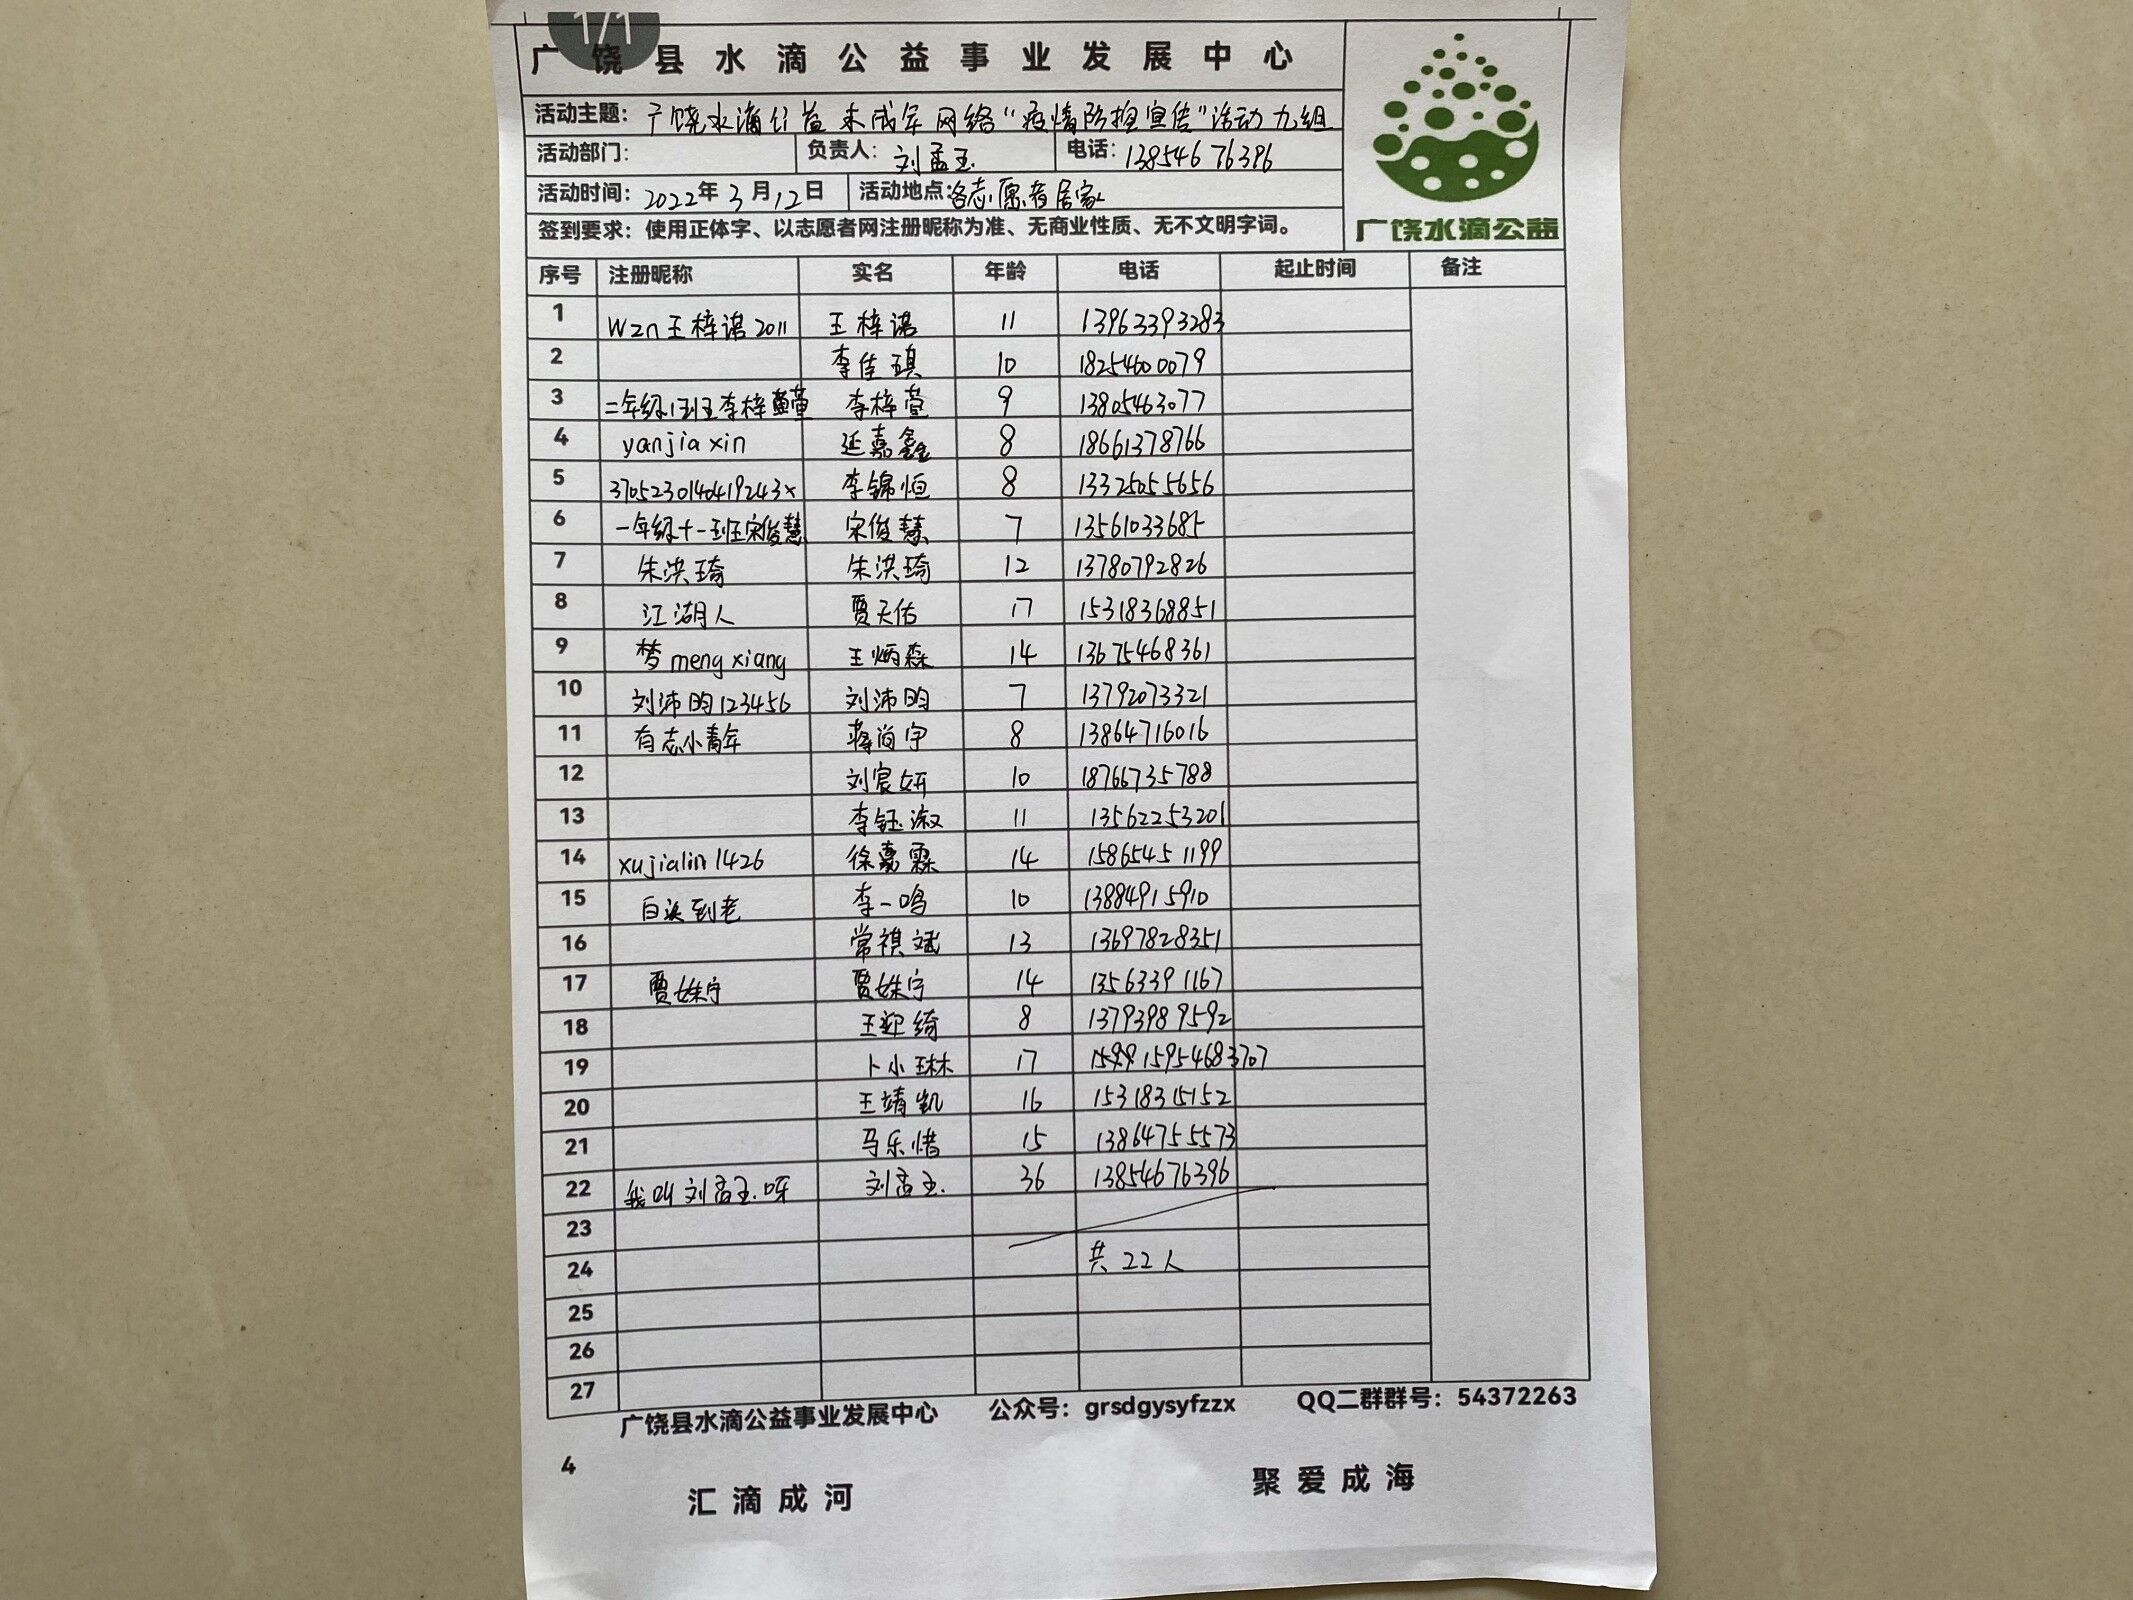 1/1
广饶县水滴公益事业发展中心
活动主题：广饶水滴公益未成年网络“疫情防控宣传”活动九组
活动部门： 负责人：刘孟玉 电话：13854676396
活动时间：2022年3月12日 活动地点：各志愿者居家
签到要求：使用正体字、以志愿者网注册昵称为准、无商业性质、无不文明字词。
广饶水滴公益
序号 注册昵称 实名 年龄 电话 起止时间 备注
1 wzn王梓诺2011 王梓诺 11 13963393283
2 李佳琪 10 18254600079
3 二年级1班王李梓萱 李梓萱 9 13805463077
4 yanjiaxin 延嘉鑫 8 18661378766
5 3705230140419243x 李锦恒 8 13325055656
6 一年级十一班宋俊慧 宋俊慧 7 13561033685
7 朱洪琦 朱洪琦 12 13780792826
8 江湖人 贾天佑 17 15318368851
9 梦mengxiang 王炳森 14 13675468361
10 刘沛昀123456 刘沛昀 7 13792073321
11 有志小青年 蒋尚宇 8 13864716016
12 刘宸妍 10 18766735788
13 李钰淑 11 13562253201
14 xujialin1426 徐嘉霖 14 15865451199
15 白头到老 李一鸣 10 13884915910
16 常祺斌 13 13697828351
17 贾姝宁 贾姝宁 14 13563391167
18 王迎绮 8 13793989592
19 卜小琳 17 15954683707
20 王靖凯 16 15318315152
21 马乐惜 15 13864755573
22 我叫刘孟玉呀 刘孟玉 36 13854676396
23
24 共22人
25
26
27
广饶县水滴公益事业发展中心 公众号：grsdgysyfzzx QQ二群群号：54372263
4
汇滴成河 聚爱成海